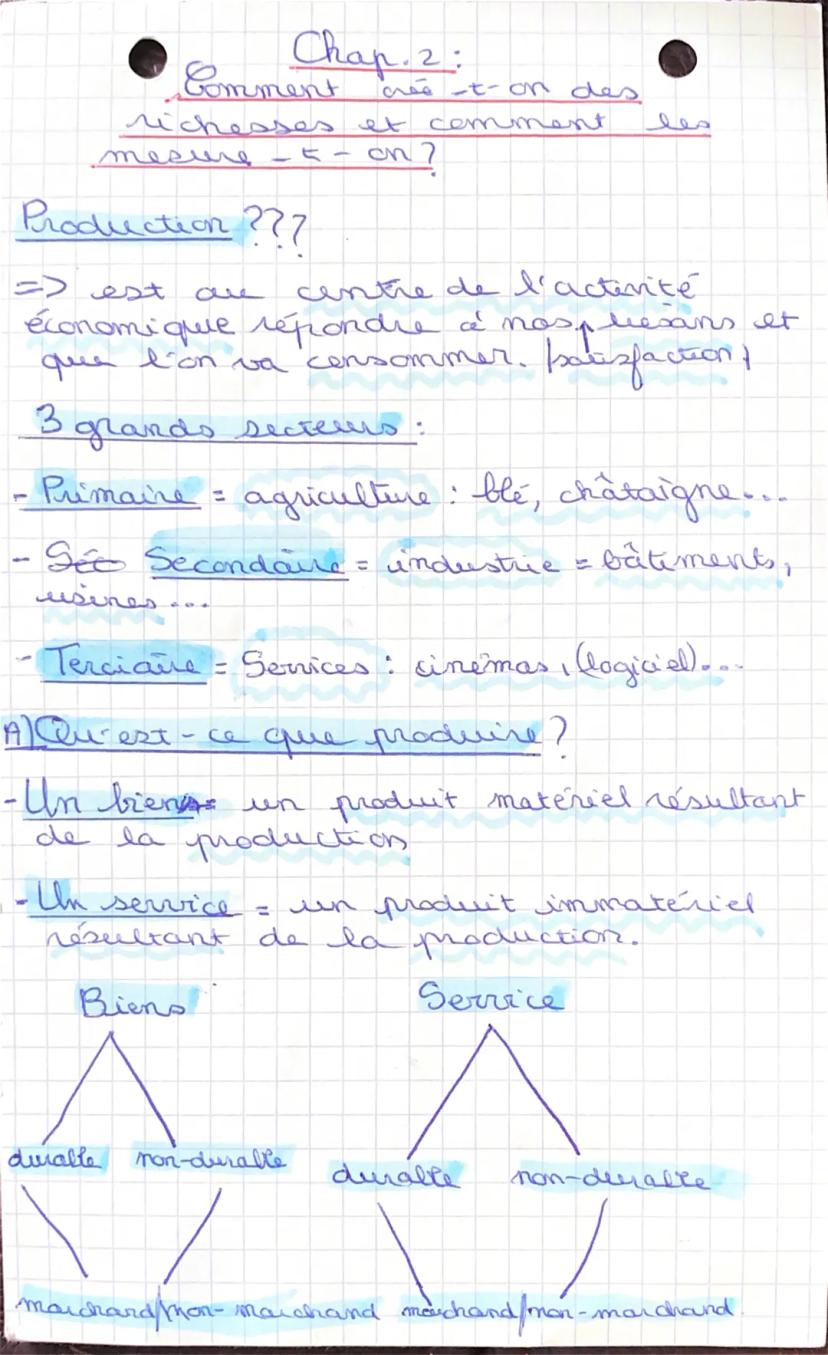 Chap. 2 :
Comment créé-t-on des
richesses et comment les
mesure-t-on ?
Production ???
=> est au centre de l'activité
économique répondre à nos besoins et
que l'on va consommer. (satisfaction)
3 grands secteurs :
- Primaire = agriculture : blé, châtaigne...
- Séc Secondaire = industrie = bâtiments,
usines...
- Terciaire = Services : cinémas, (logiciel)...
A) Qu'est-ce que produire ?
- Un bien = un produit matériel résultant
de la production
- Un service = un produit immatériel
résultant de la production.
Biens Service
durable non-durable durable non-durable
marchand/non-marchand marchand/non-marchand